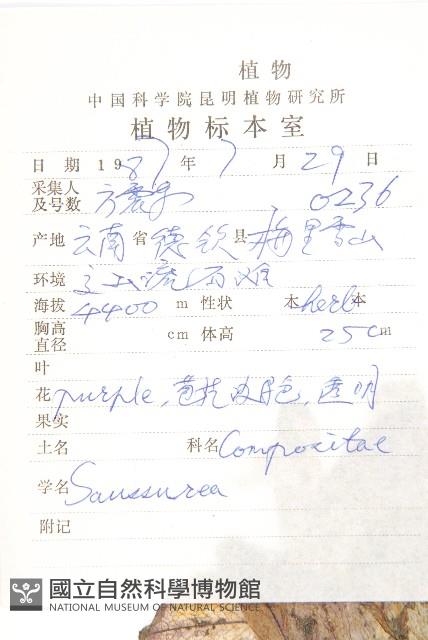 植物
中国科学院昆明植物研究所
植物标本室
日期 1987年7月29日
采集人及号数 方震东 0236
产地 云南省德钦县梅里雪山
环境 主山流石滩
海拔 4400 m 性状 本herb本
胸高直径 cm 体高 25cm
叶
花 purple, 苞片 色, 透明
果实
土名 科名 Compositae
学名 Saussurea
附记
國立自然科學博物館
NATIONAL MUSEUM OF NATURAL SCIENCE